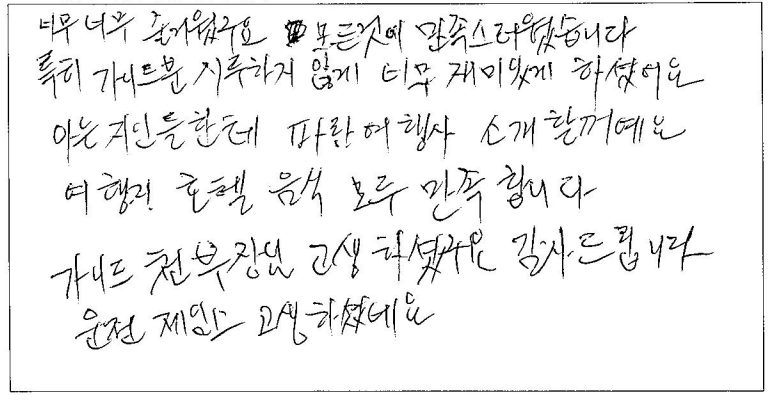 너무 너무 즐거웠구요 모든것에 만족스러웠습니다
특히 가이드분 지루하지 않게 너무 재미있게 하셨어요
아는 지인들한테 파란여행사 소개할꺼예요
여행지 호텔 음식 모두 만족합니다
가이드 천부장님 고생하셨구요 감사드립니다
운전 제임스 고생하셨네요